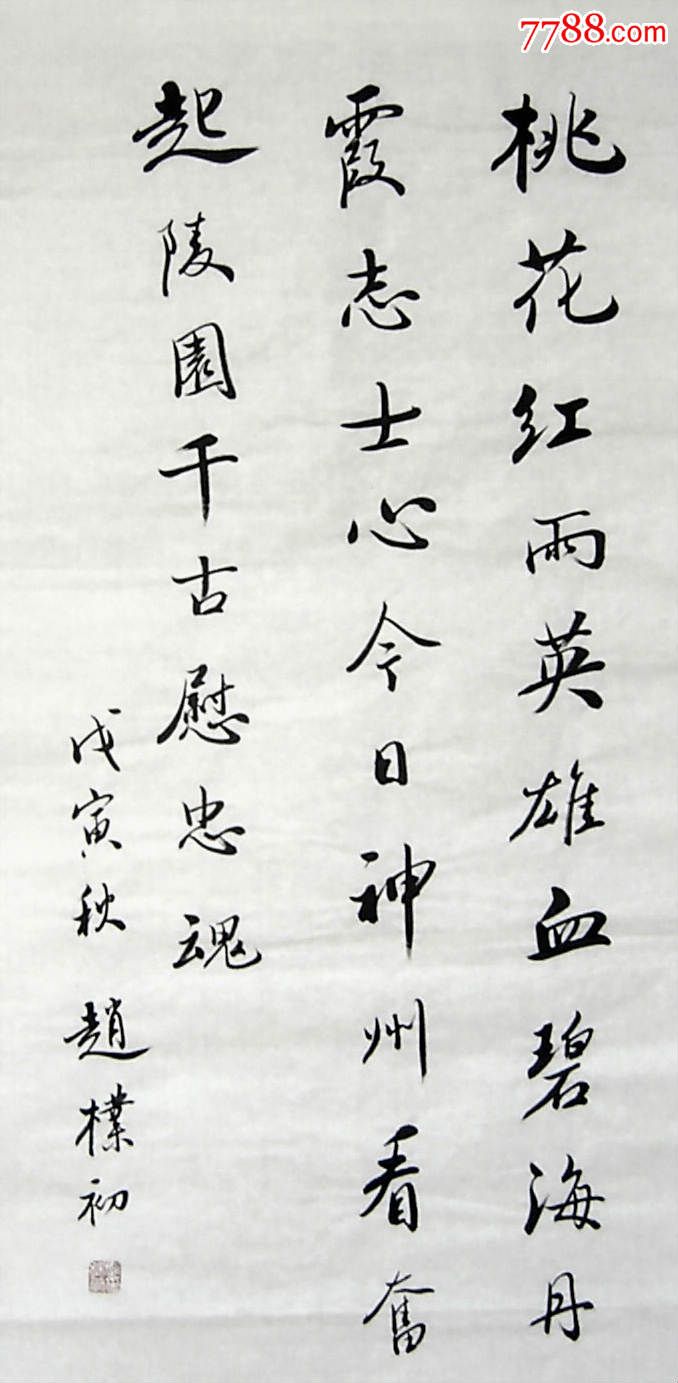 7788.com
桃花红雨英雄血碧海丹
霞志士心今日神州看奮
起陵園千古慰忠魂
戊寅秋 趙樸初